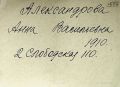 Александрова
Анна Васильевна
1910.
2 Слободская 110.